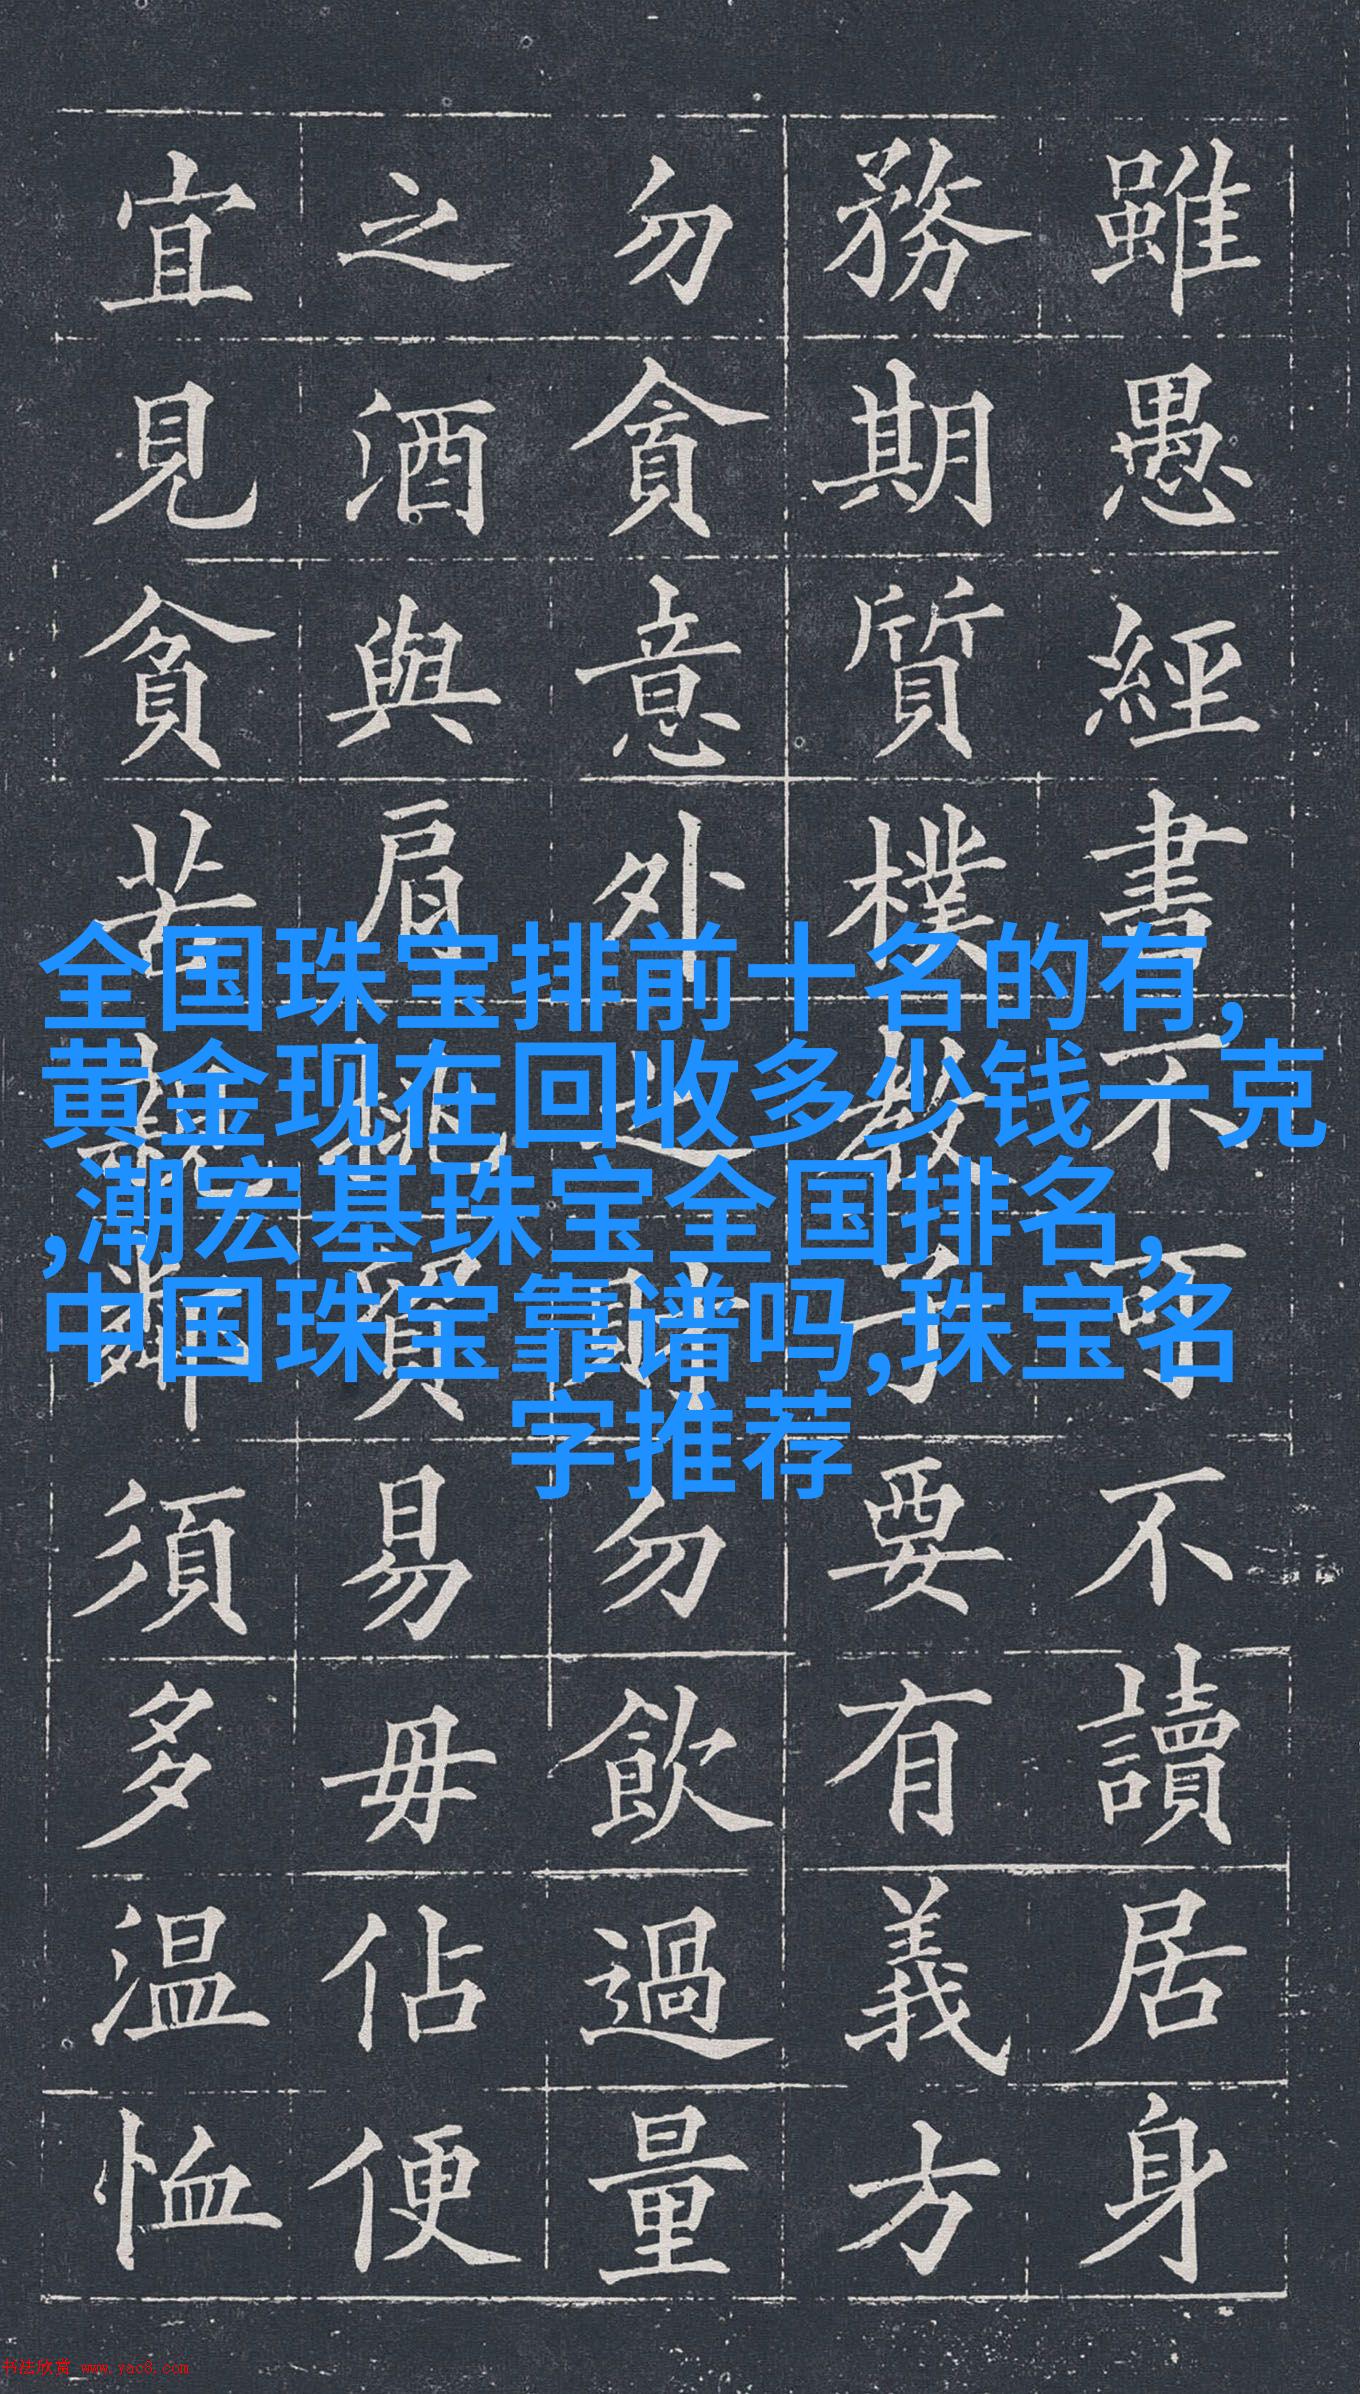 雖愚經書不可不讀居身
務期質樸教子要有義方
勿貪意外之財勿飲過量
之酒與肩挑貿易毋佔便
宜見貧苦親鄰須多温恤
全国珠宝排前十名的有,
黄金现在回收多少钱一克
,潮宏基珠宝全国排名,
中国珠宝靠谱吗,珠宝名
字推荐
书法欣赏 www.yac8.com